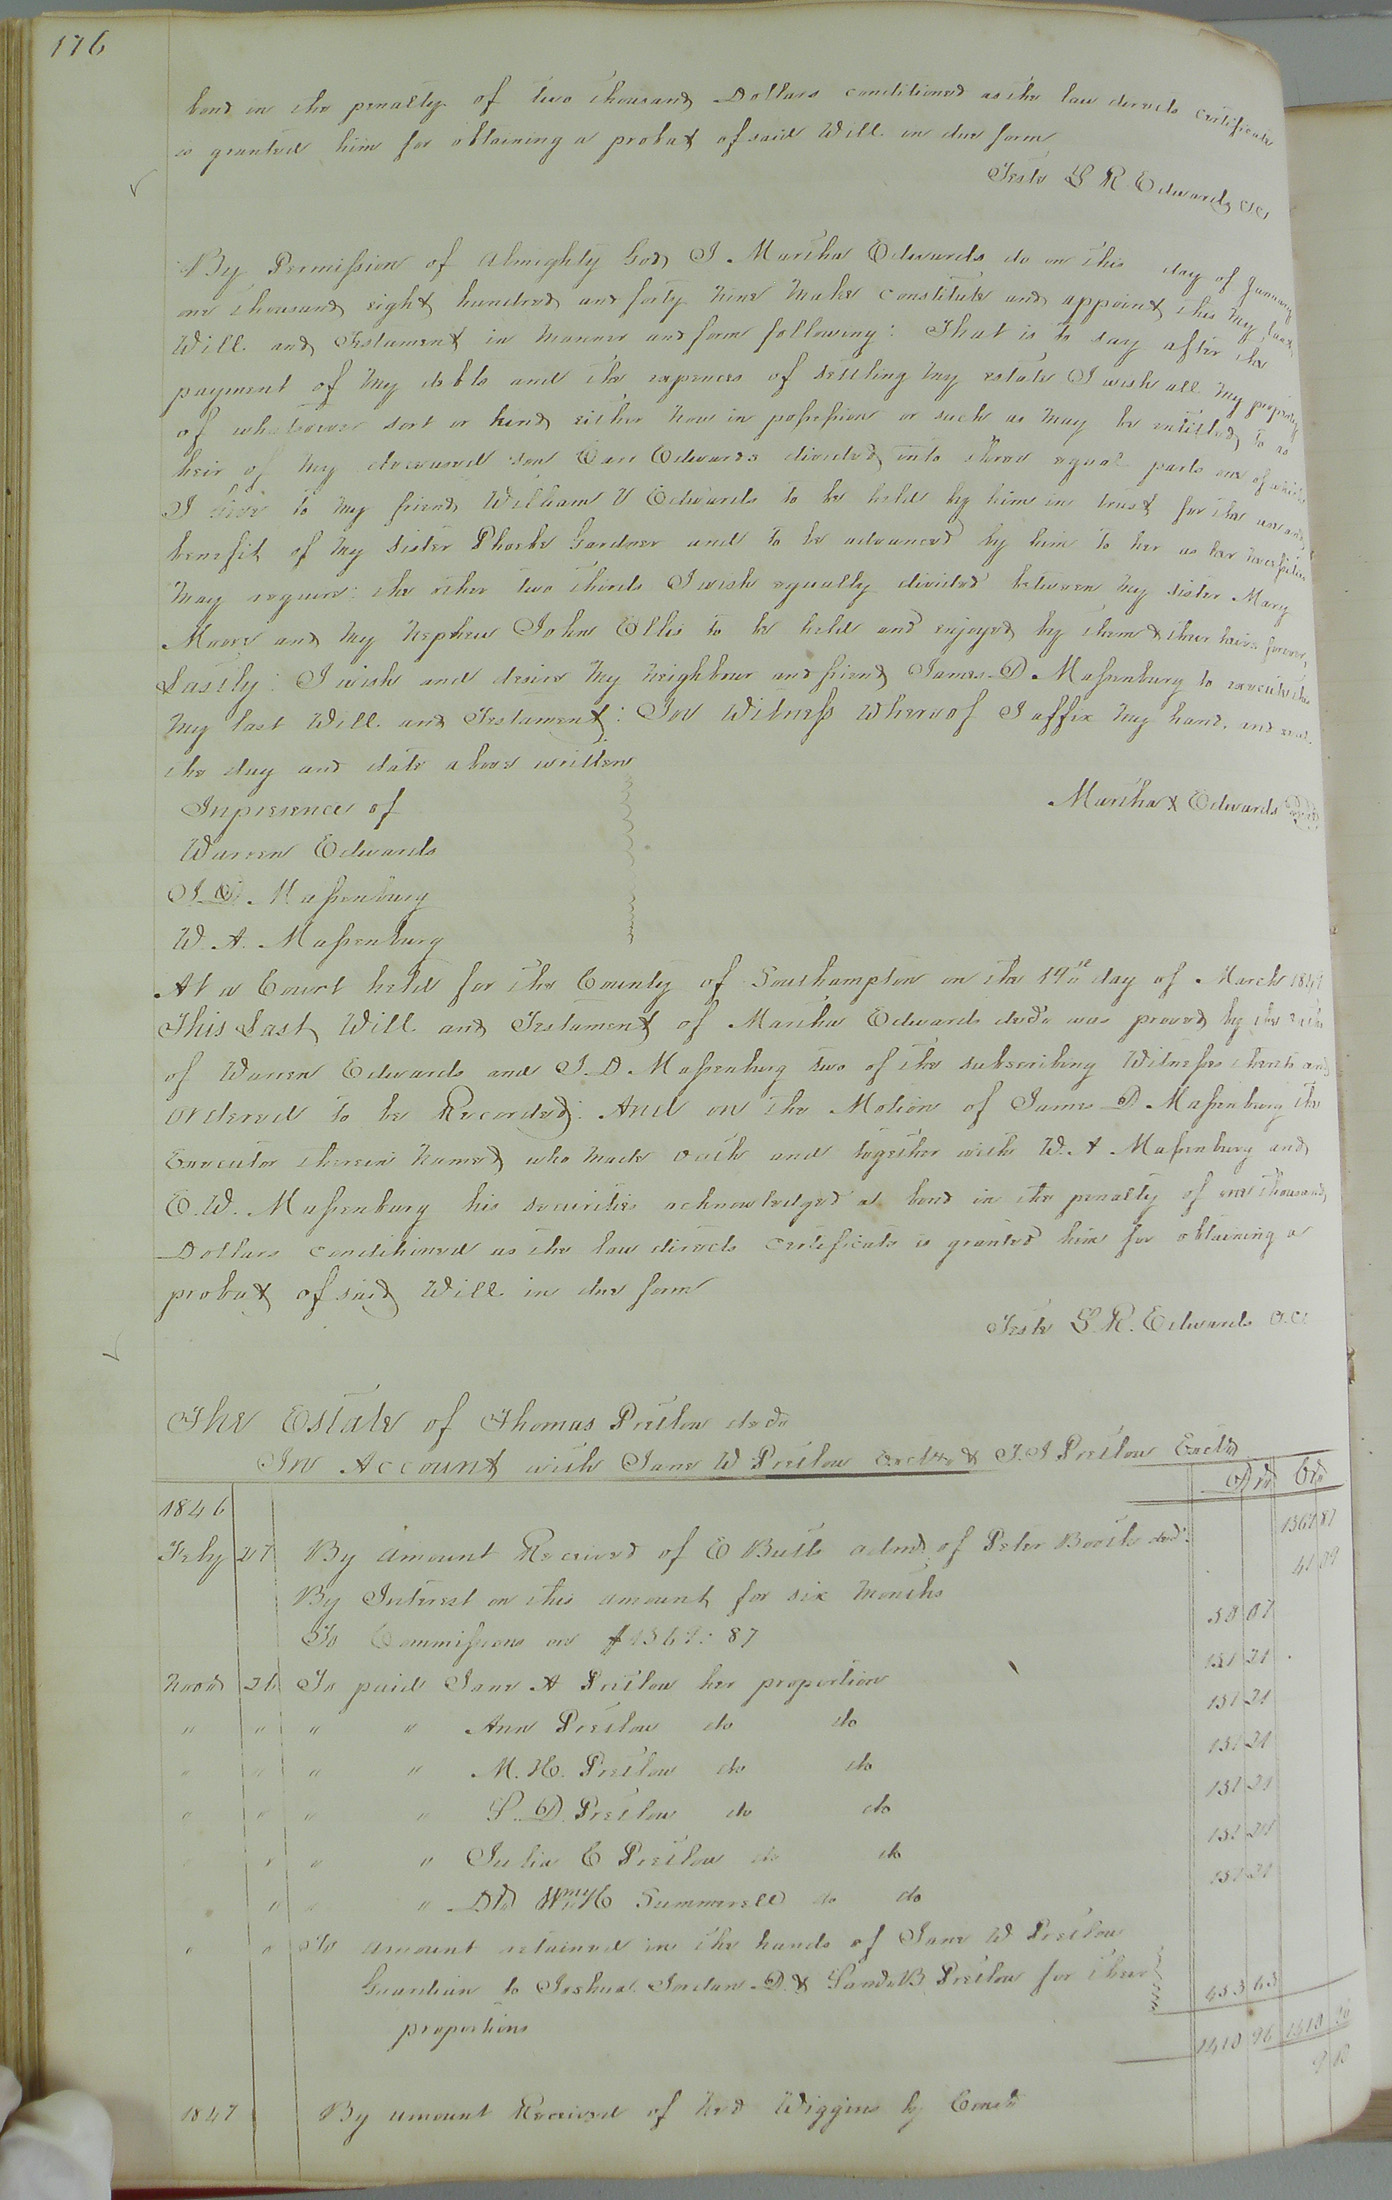 176
bond in the penalty of two thousand Dollars conditioned as the law directs certificate
is granted him for obtaining a probat of said Will in due form
Teste L R Edwards
By Permission of Almighty God, I Martha Edwards do on this day of January
one thousand eight hundred and forty Nine Make constitute and appoint this My last
Will and Testament in Manner and form following: That is to say after the
payment of My debts and the expences of settling My estate I wish all My property
of whatsoever sort or kind either now in possession or such as May be entitled to as
heir of My deceased son Carr Edwards divided into three equal parts one of which
I Give to My friend William V Edwards to be held by him in trust for the use and
benefit of My Sister Phoebe Gardner and to be advanced by him to her as her necessities
May require: the other two thirds I wish equally divided between My sister Mary
Moore and My Nephew John Ellis to be held and enjoyed by them & their heirs forever,
Lastly: I wish and desire My Neighbour and friend James D. Massenburg to execute this
My last Will and Testament: In Witness Whereof I affix My hand, and seal
the day and date above written
Inpresence of
Martha X Edwards
Warren Edwards
J. D. Massenburg
W. A. Massenburg
At a Court held for the County of Southampton on the 19th day of March 1849
This Last Will and Testament of Martha Edwards decd was proved by the oaths
of Warren Edwards and J. D. Massenburg two of the subscribing Witnesses thereto and
ordered to be Recorded. And on the Motion of James D Massenburg the
Executor therein Named, who Made oath and together with W. A Massenburg and
E. W. Massenburg his securities acknowledged a bond in the penalty of one thousand
Dollars conditioned as the law directs certificate is granted him for obtaining a
probat of said Will in due form
Teste L. R. Edwards
The Estate of Thomas Pretlow decd
In Account with Jane W Pretlow & J. J Pretlow
Dr Cr
1846
Feby 27 By Amount Received of E Butts admr of Peter Booth decd 1369 87
By Interest on this amount for six Months 41 09
To Commissions on $1369: 87 50 07
26 To paid Jane A Pretlow her proportion 151 21
" " " " Ann Pretlow do do 151 21
" " " " M. H. Pretlow do do 151 21
" " " " S. D. Pretlow do do 151 21
" " " " Julia E Pretlow do do 151 21
" " " Wm H Summerell do do 151 21
" " To amount retained in the hands of Jane W Pretlow
Guardian to Joshua, Jordan D. & B Pretlow for their
proportions 453 63
1410 96 1410 96
1847 By amount Received of Wiggins by